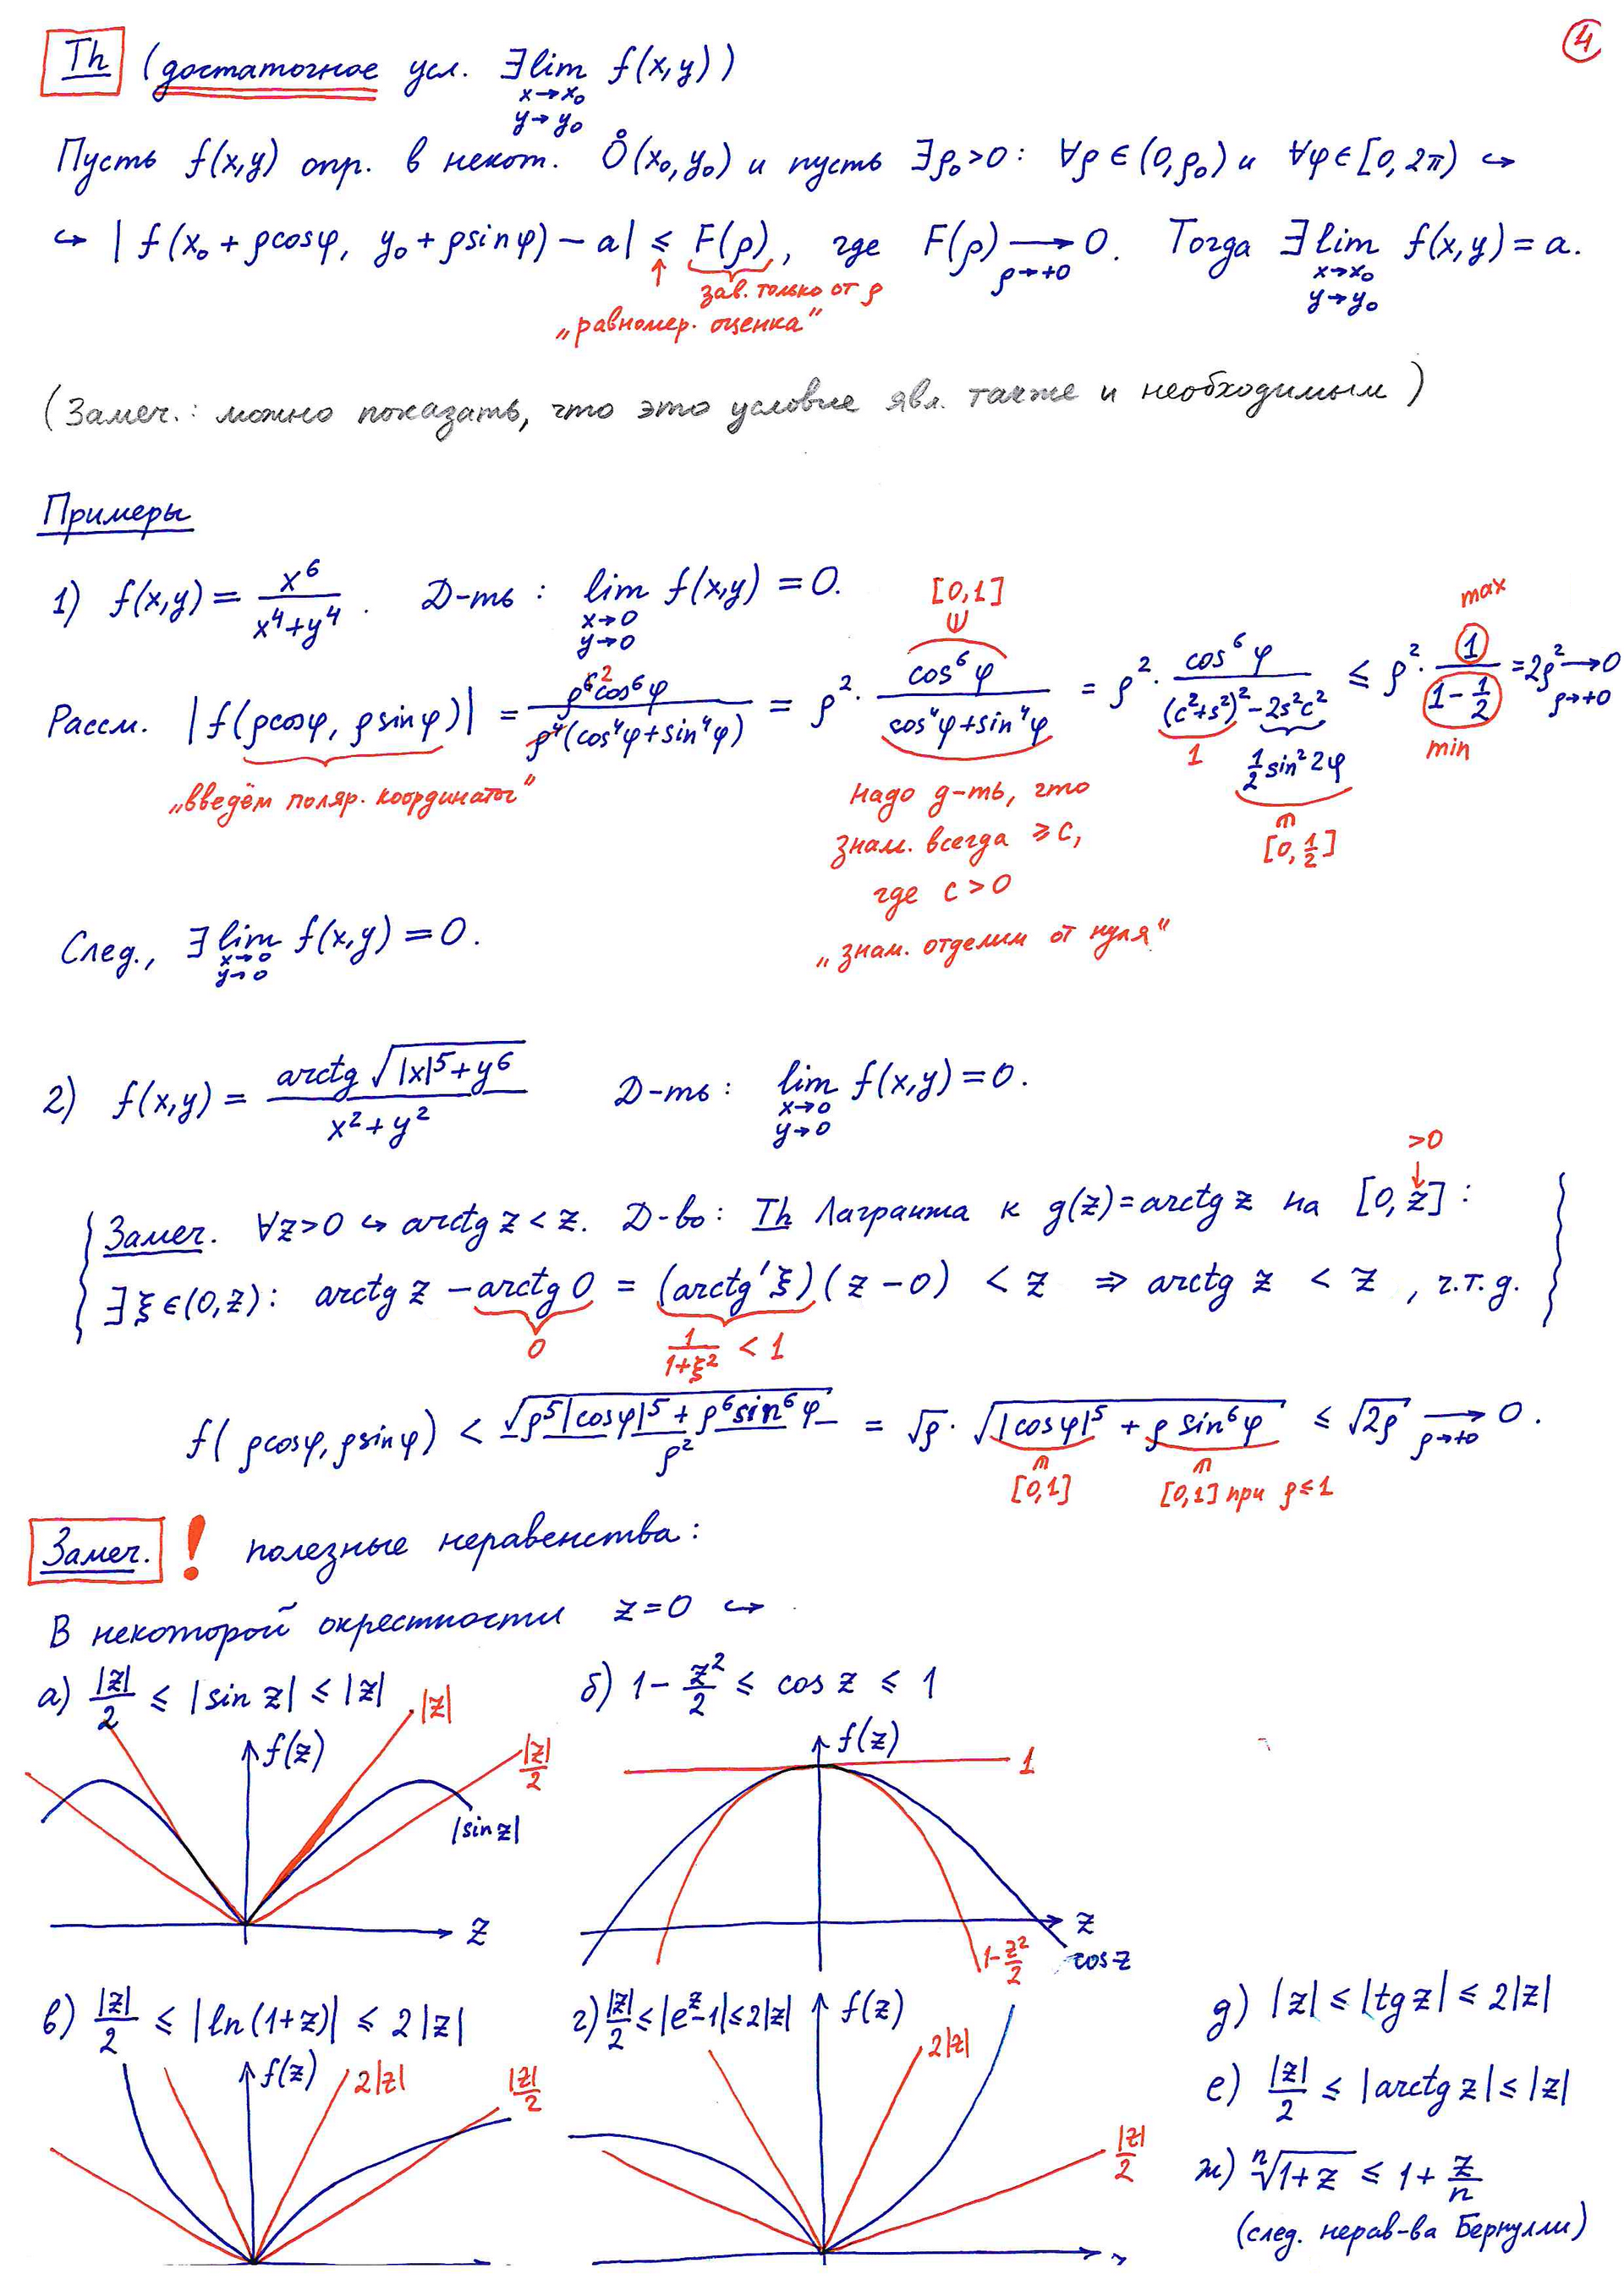 4
Th (достаточное усл. ∃ lim f(x,y))
x→x₀
y→y₀
Пусть f(x,y) опр. в некот. O̊(x₀,y₀) и пусть ∃ρ₀>0: ∀ρ∈(0,ρ₀) и ∀φ∈[0,2π) ↪
↪ |f(x₀+ρcosφ, y₀+ρsinφ) − a| ≤ F(ρ), где F(ρ) → 0. Тогда ∃ lim f(x,y) = a.
ρ→+0
x→x₀
y→y₀
↑ зав. только от ρ
„равномер. оценка“
(Замеч.: можно показать, что это условие явл. также и необходимым)
Примеры
1) f(x,y) = x⁶/(x⁴+y⁴). Д-ть: lim f(x,y) = 0.
x→0
y→0
[0,1]
max
Рассм. |f(ρcosφ, ρsinφ)| = ρ⁶cos⁶φ/(ρ⁴(cos⁴φ+sin⁴φ)) = ρ²·cos⁶φ/(cos⁴φ+sin⁴φ) = ρ²·cos⁶φ/((c²+s²)²−2s²c²) ≤ ρ²·1/(1−1/2) = 2ρ² → 0
2
ρ→+0
1
1/2 sin²2φ
min
[0, 1/2]
„введём поляр. координаты“
надо д-ть, что
знам. всегда ≥ C,
где C > 0
„знам. отделим от нуля“
След., ∃ lim f(x,y) = 0.
x→0
y→0
2) f(x,y) = arctg √(|x|⁵+y⁶)/(x²+y²) Д-ть: lim f(x,y) = 0.
x→0
y→0
>0
↓
Замеч. ∀z>0 ↪ arctg z < z. Д-во: Th Лагранжа к g(z) = arctg z на [0, z]:
∃ξ∈(0,z): arctg z − arctg 0 = (arctg′ξ)(z−0) < z ⇒ arctg z < z, ч.т.д.
0
1/(1+ξ²) < 1
f(ρcosφ, ρsinφ) < √(ρ⁵|cosφ|⁵+ρ⁶sin⁶φ)/ρ² = √ρ · √(|cosφ|⁵ + ρ sin⁶φ) ≤ √(2ρ) → 0.
ρ→+0
[0,1]
[0,1] при ρ≤1
Замеч. ! полезные неравенства:
В некоторой окрестности z=0 ↪
а) |z|/2 ≤ |sin z| ≤ |z|
б) 1 − z²/2 ≤ cos z ≤ 1
f(z)
|z|
|z|/2
|sin z|
z
f(z)
1
z
1−z²/2
cos z
в) |z|/2 ≤ |ln(1+z)| ≤ 2|z|
г) |z|/2 ≤ |eᶻ−1| ≤ 2|z|
f(z)
2|z|
|z|/2
f(z)
2|z|
|z|/2
д) |z| ≤ |tg z| ≤ 2|z|
е) |z|/2 ≤ |arctg z| ≤ |z|
ж) ⁿ√(1+z) ≤ 1 + z/n
(след. нерав-ва Бернулли)